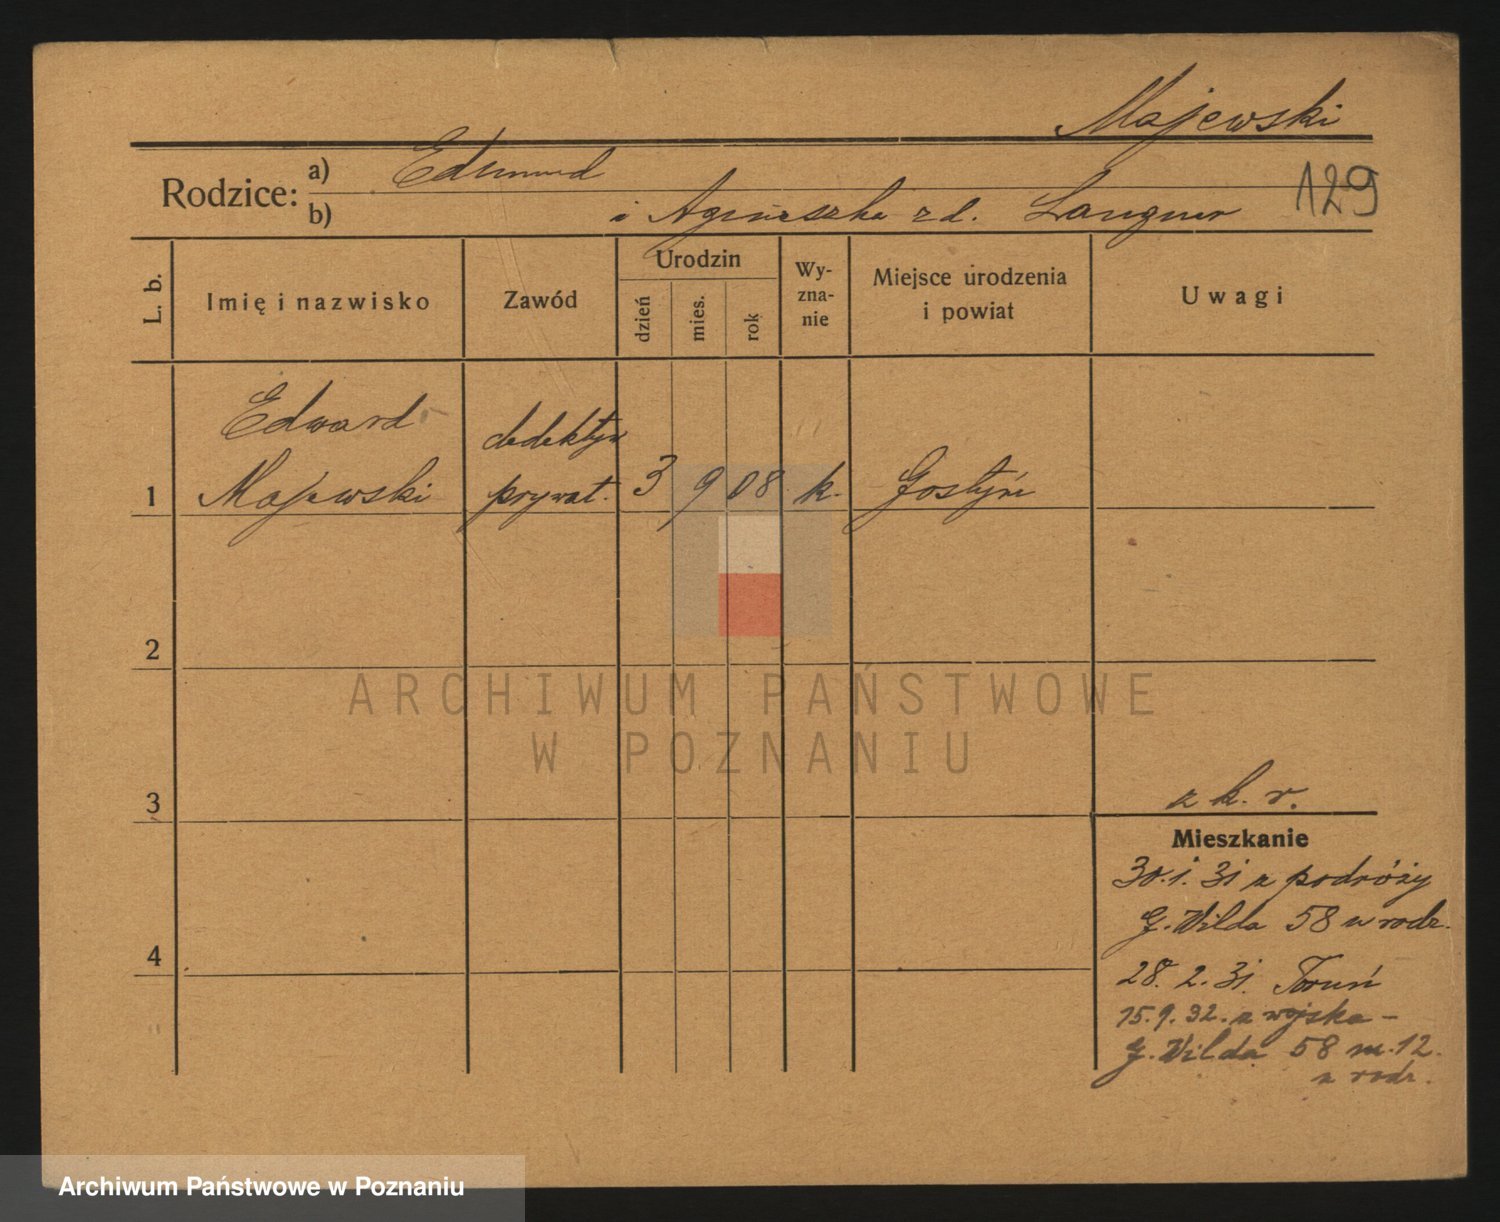 Majewski
Rodzice: a) Edmund
129
b) i Agnieszka zd. Langner
L. b.
Imię i nazwisko
Zawód
Urodzin
dzień
mies.
rok
Wy-
zna-
nie
Miejsce urodzenia
i powiat
Uwagi
Edward
dedektyw
1 Majewski prywat. 3 9 08 k. Gostyń
2
ARCHIWUM PAŃSTWOWE
W POZNANIU
z k. r.
3
Mieszkanie
30.1.31 z podróży
G. Wilda 58 u rodz.
4
28.2.31. Toruń
15.9.32. z wojska –
G. Wilda 58 m. 12.
u rodz.
Archiwum Państwowe w Poznaniu